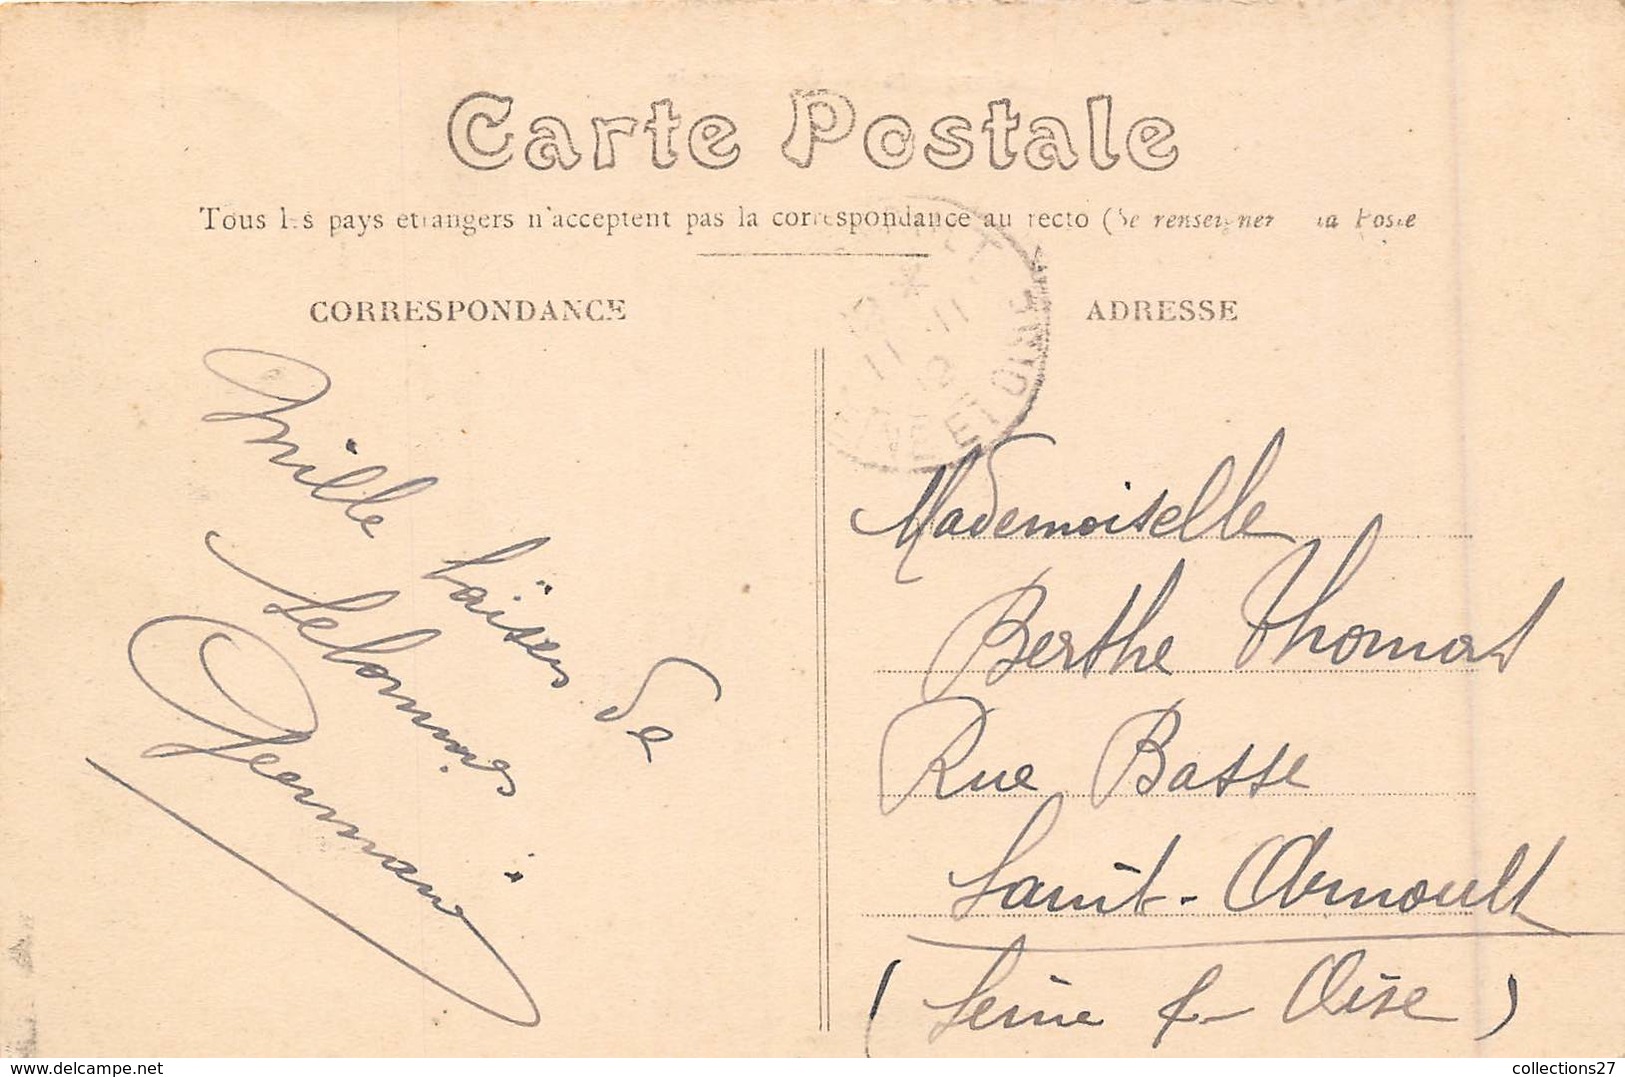 Carte Postale
Tous les pays étrangers n'acceptent pas la correspondance au recto (Se renseigner la Poste
CORRESPONDANCE
ADRESSE
ET OISE
11
Mille baisers de
Germaine
Mademoiselle
Berthe Thomas
Rue Basse
Saint-Arnoult
(Seine & Oise)
www.delcampe.net
collections27